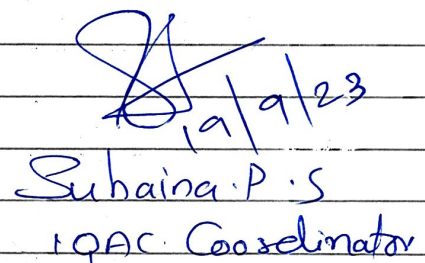 19/9/23
Suhaina.P.S
IQAC. Coordinator